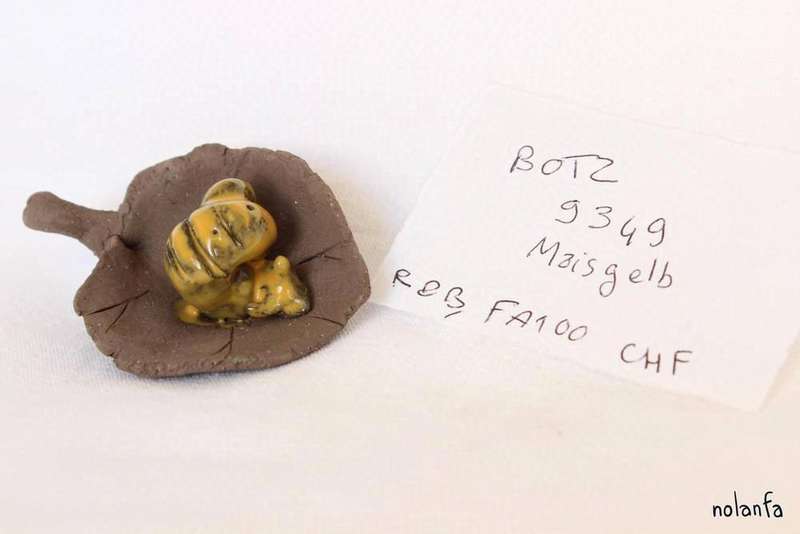 BOTZ
9349
Maisgelb
ROB FA100 CHF
nolanfa